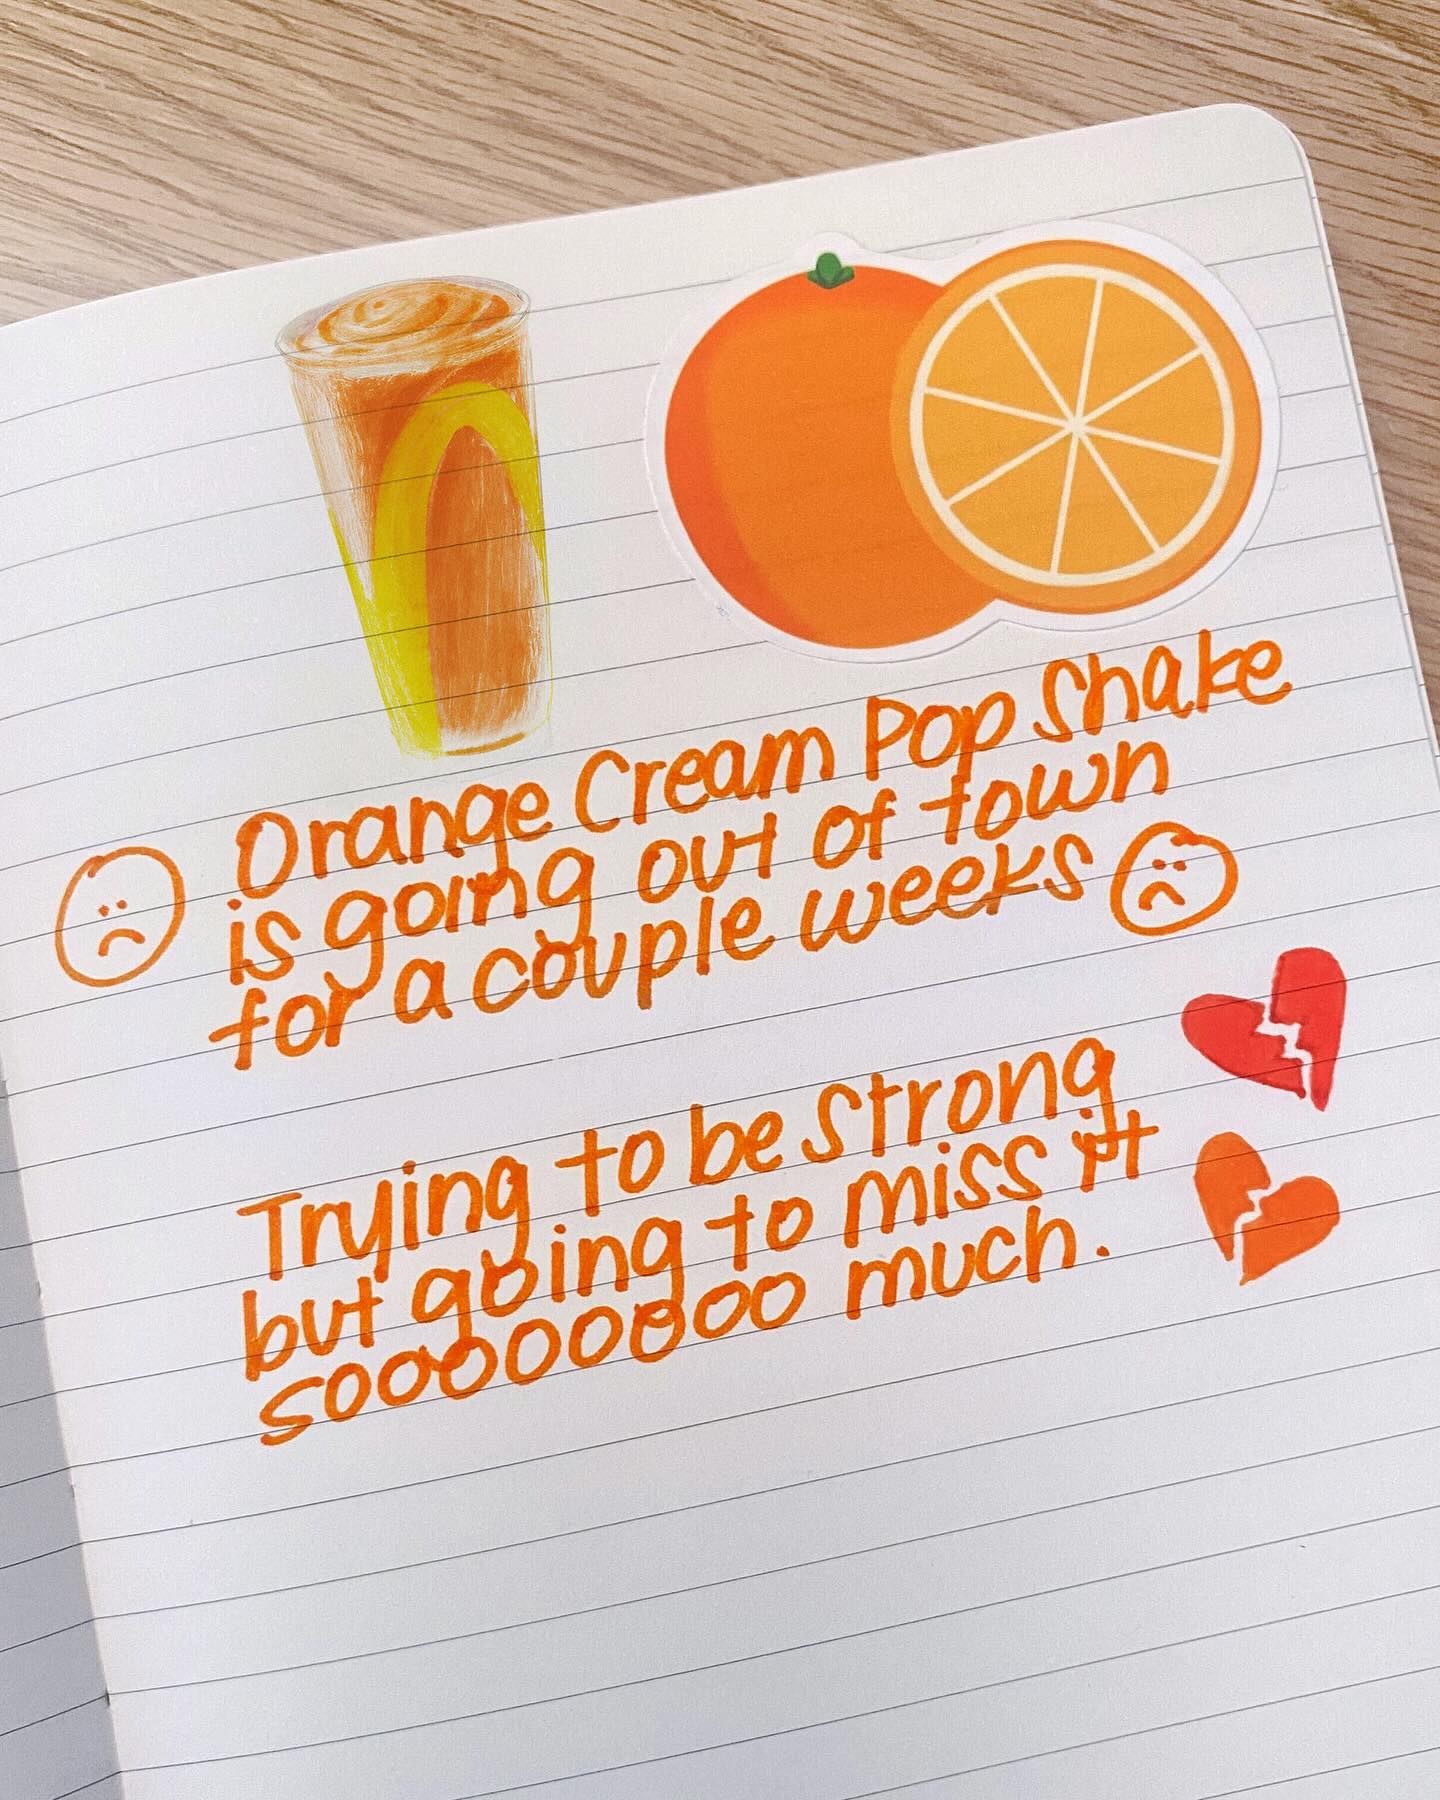 Orange Cream Pop Shake
is going out of town
for a couple weeks
Trying to be strong
but going to miss it
sooooooooo much.